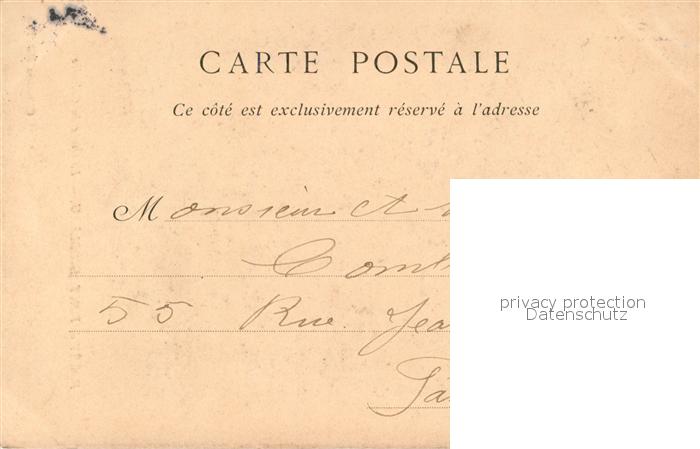 CARTE POSTALE
Ce côté est exclusivement réservé à l'adresse
Monsieur
55 Rue
privacy protection
Datenschutz